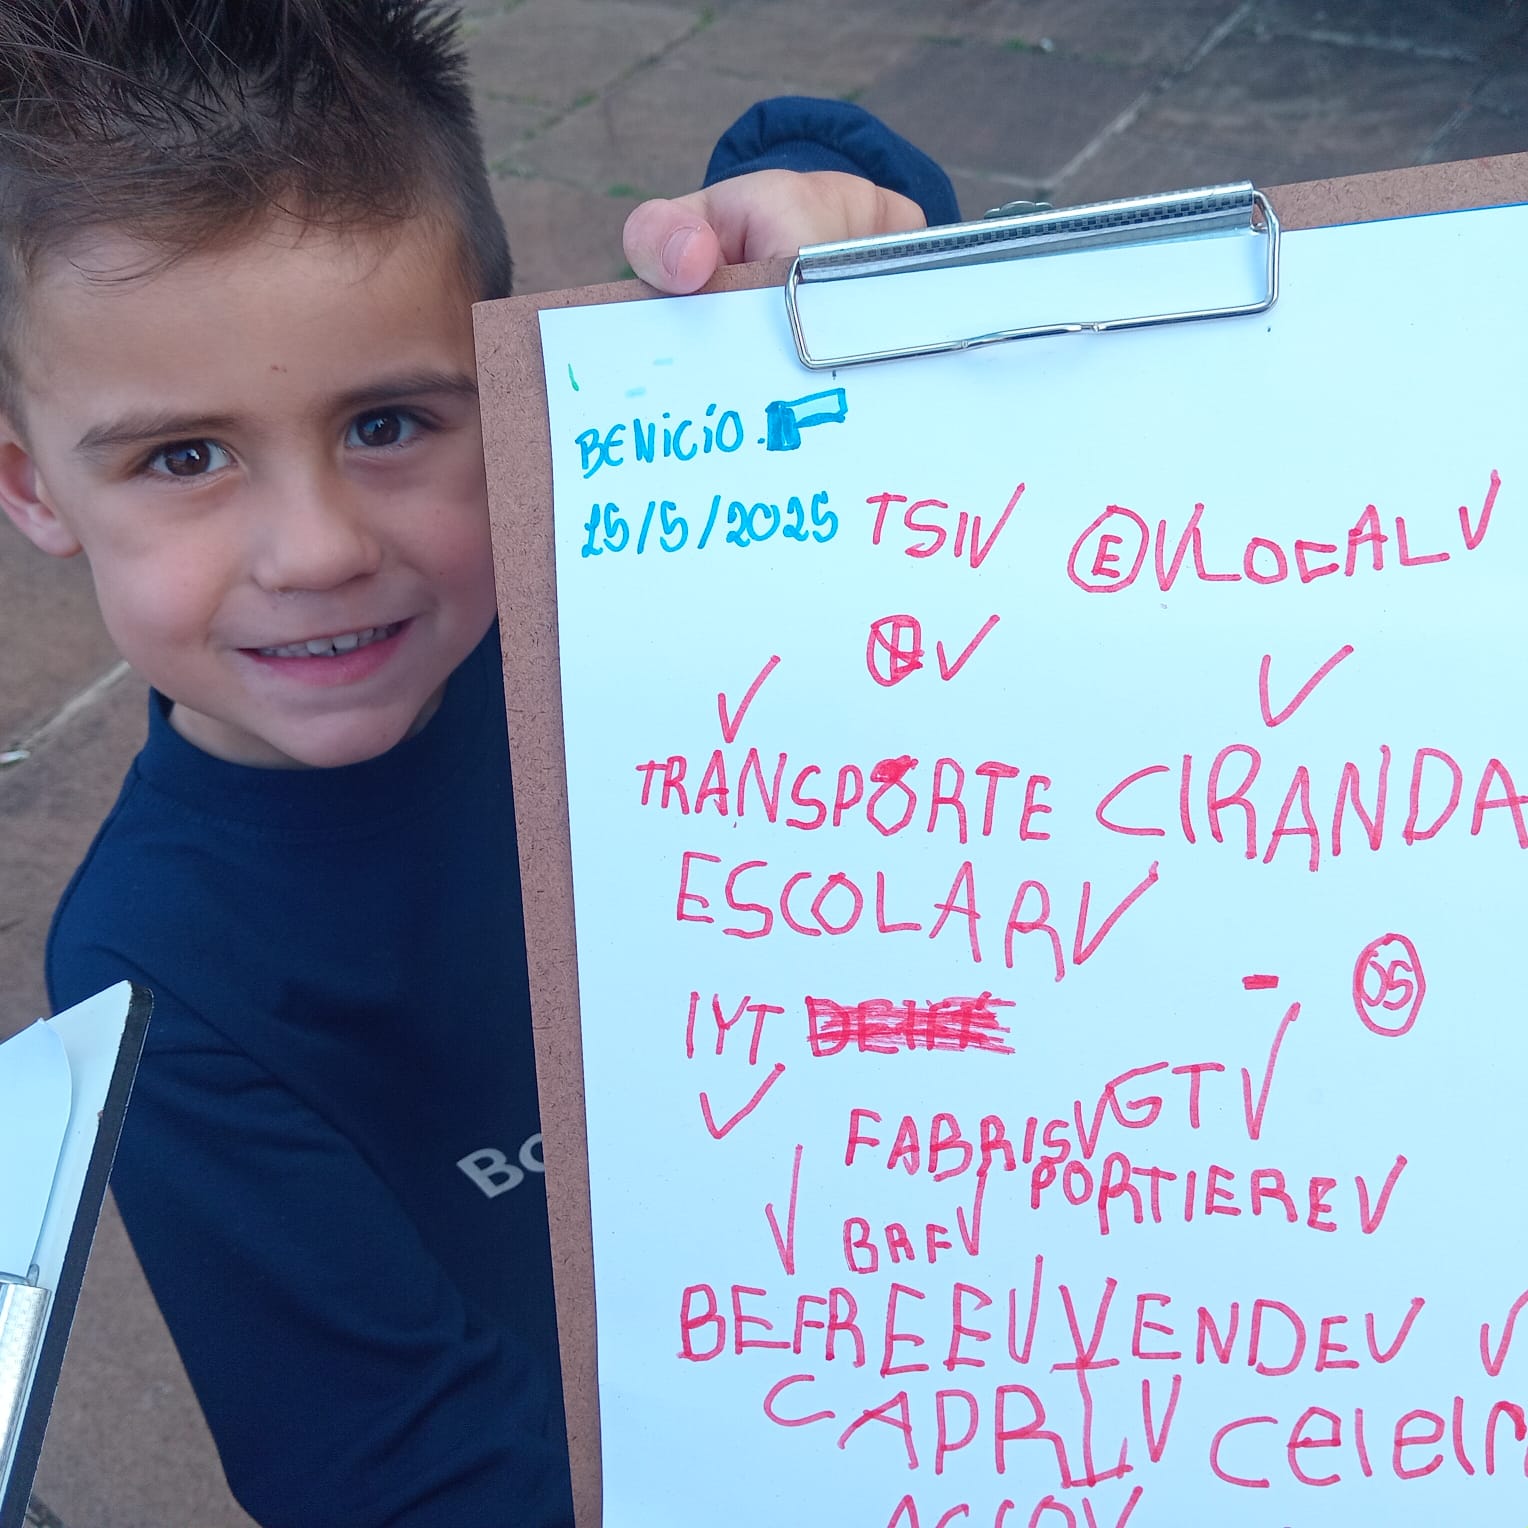 BENICIO.
15/5/2025 TSI✓ Ⓔ✓LOCAL✓
✓ ✓
TRANSPORTE CIRANDA
ESCOLAR✓
IYT
- OS
✓ FABRIS✓ GT✓
PORTIERE✓
BAF✓
BEFREE✓ VENDE✓ ✓
CAPRI✓
BO